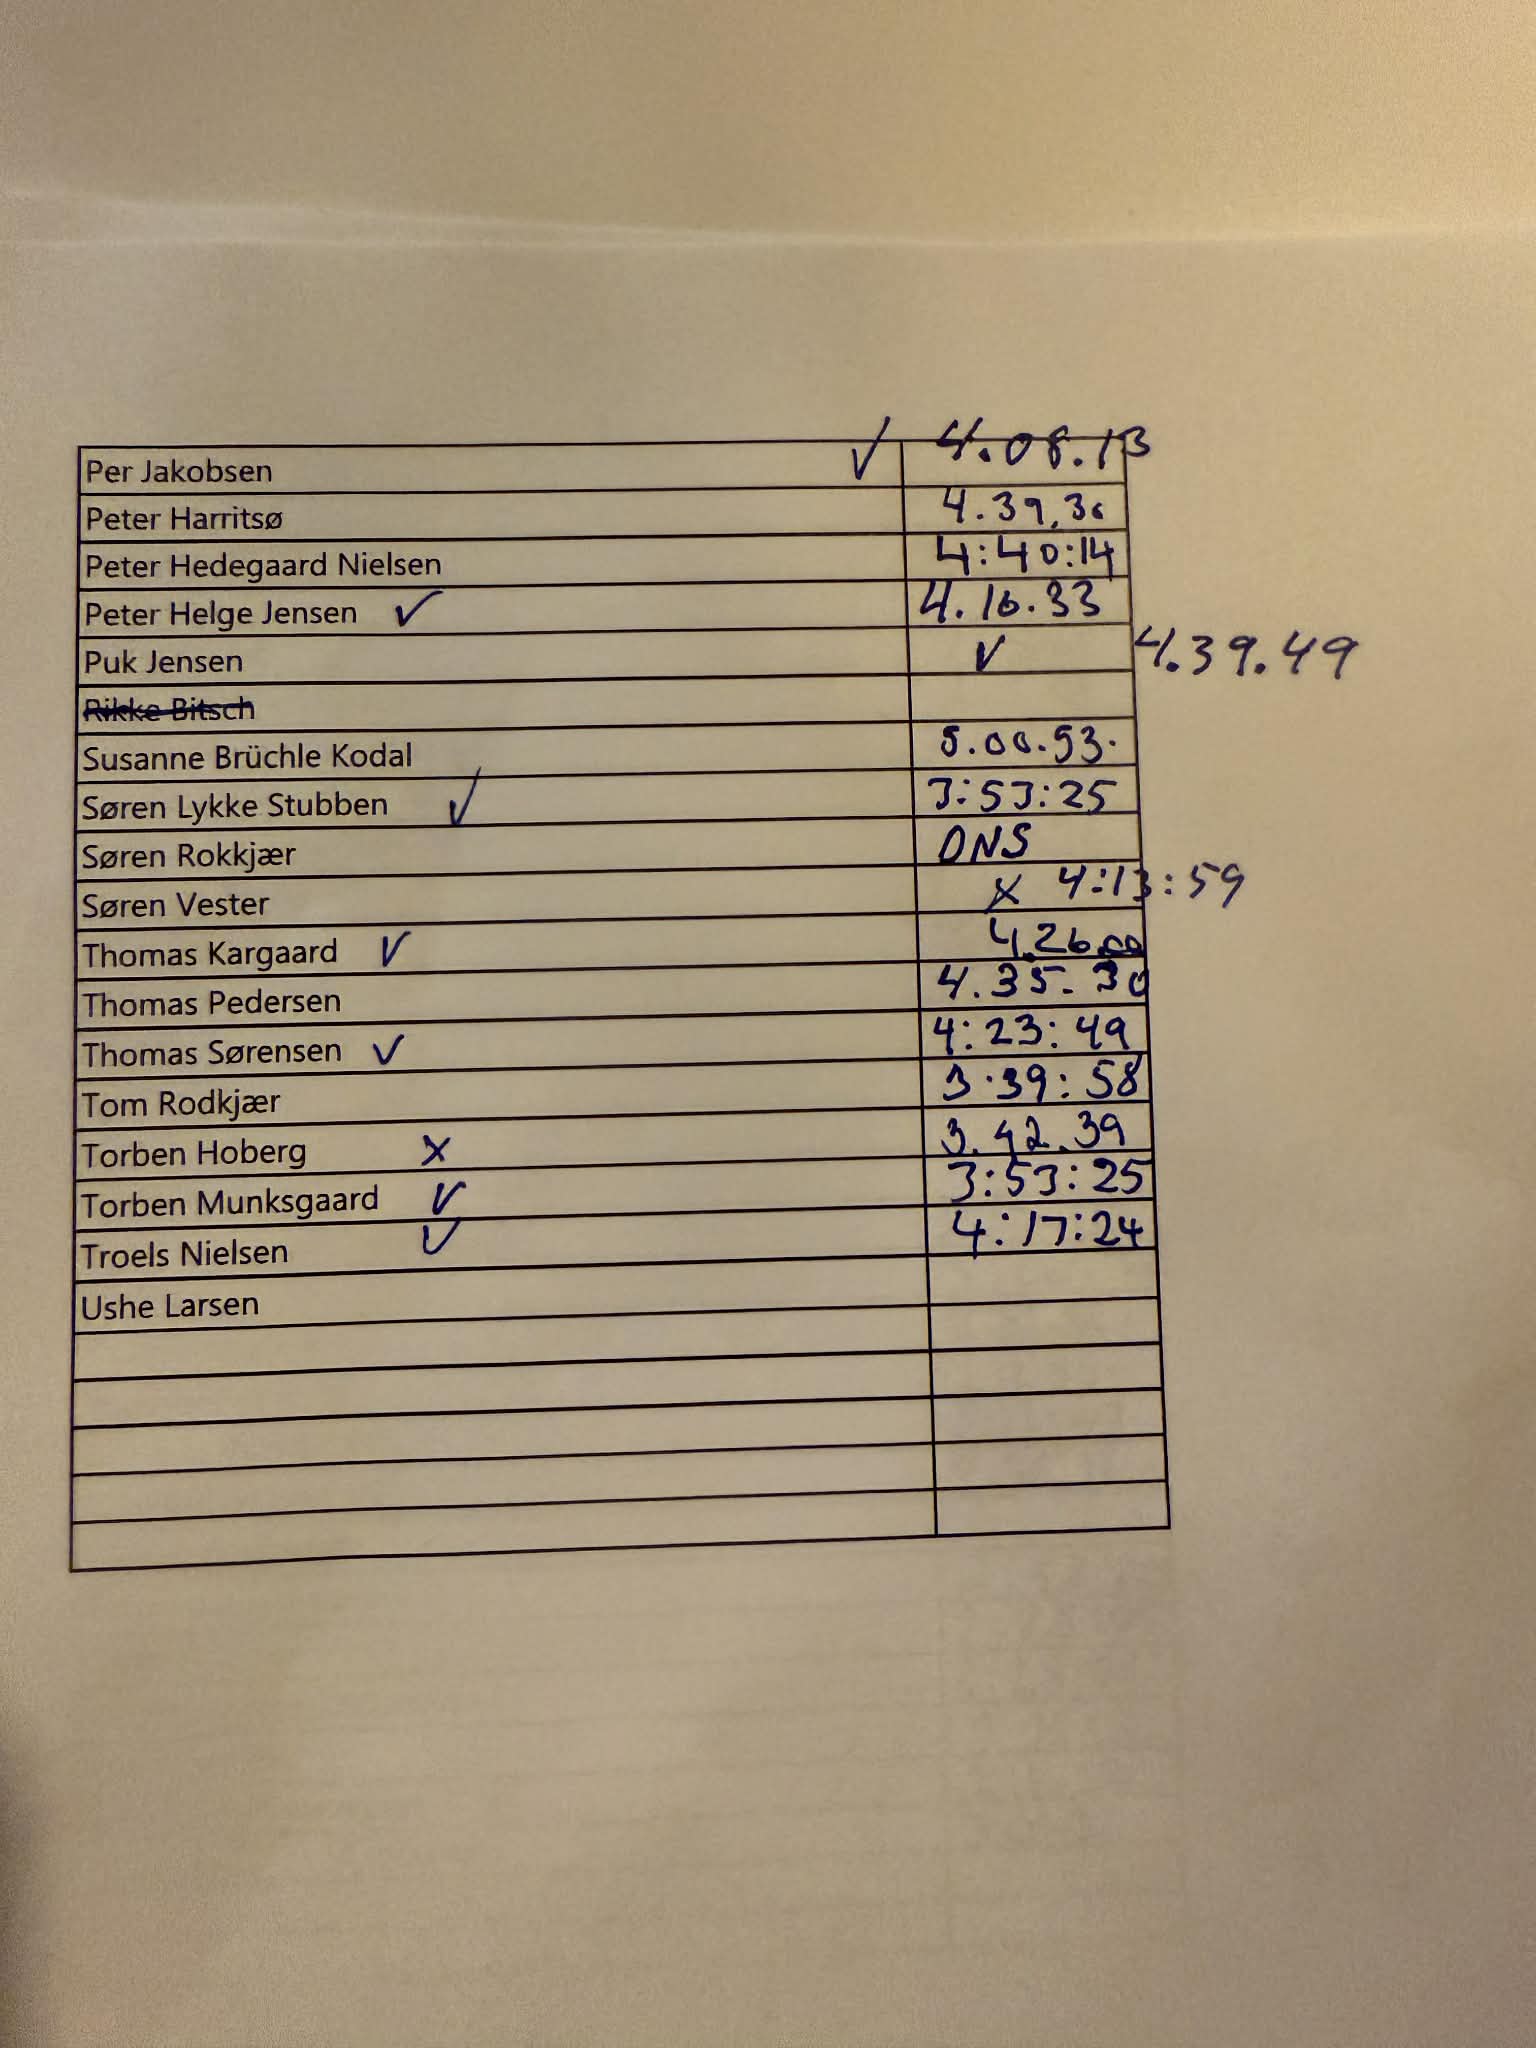 Per Jakobsen ✓ 4.08.13
Peter Harritsø 4.39,30
Peter Hedegaard Nielsen 4:40:14
Peter Helge Jensen ✓ 4.16.33
Puk Jensen ✓ 4.39.49
Rikke Bitsch
Susanne Brüchle Kodal 5.00.53.
Søren Lykke Stubben ✓ 3:53:25
Søren Rokkjær DNS
Søren Vester x 4:13:59
Thomas Kargaard ✓ 4.26
Thomas Pedersen 4.35.30
Thomas Sørensen ✓ 4:23:49
Tom Rodkjær 3.39:58
Torben Hoberg x 3.42.39
Torben Munksgaard ✓ 3:53:25
Troels Nielsen ✓ 4:17:24
Ushe Larsen